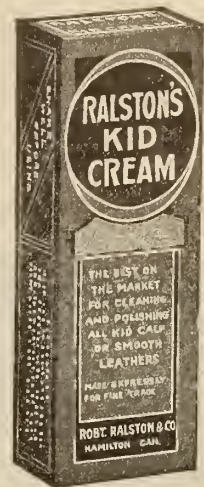 RALSTON'S
KID
CREAM
THE BEST ON
THE MARKET
FOR CLEANING
AND POLISHING
ALL KID CALF
OR SMOOTH
LEATHERS
MADE EXPRESSLY
FOR FINE TRADE
ROBT. RALSTON & CO
HAMILTON CAN.
SHAKE
WELL
BEFORE
USING